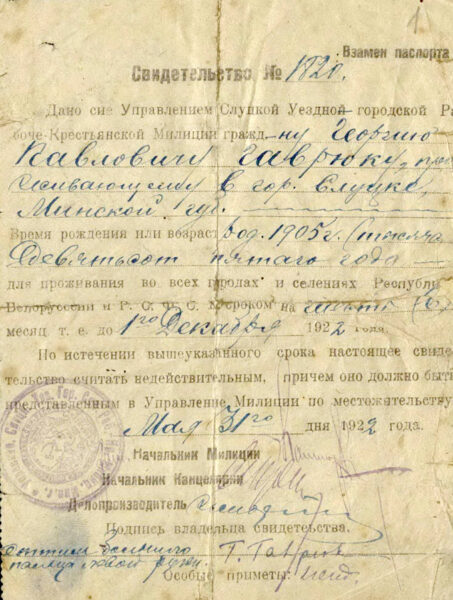 1
Взамен паспорта
Свидетельство № 1820.
Дано сие Управлением Слуцкой Уездной-городской Ра
боче-Крестьянской Милиции гражд-ну Георгию
Павловичу Гаврюку, про
живающему в гор. Слуцке,
Минской губ.
Время рождения или возраст род. 1905 г. (тысяча
девятьсот пятаго года
для проживания во всех городах и селениях Республи
Белоруссии и Р. С. Ф. С. Р. сроком на шесть (6)
месяц. т. е. до 1го Декабря 1922 года.
По истечении вышеуказанного срока настоящее свиде
тельство считать недействительным, причем оно должно быть
представленным в Управление Милиции по местожительству
Мая 31го дня 1922 года.
Начальник Милиции
Начальник Канцелярии
Делопроизводитель
Подпись владельца свидетельства.
оттиск большого Г. Гаврюк
пальца левой руки.
Особые приметы: